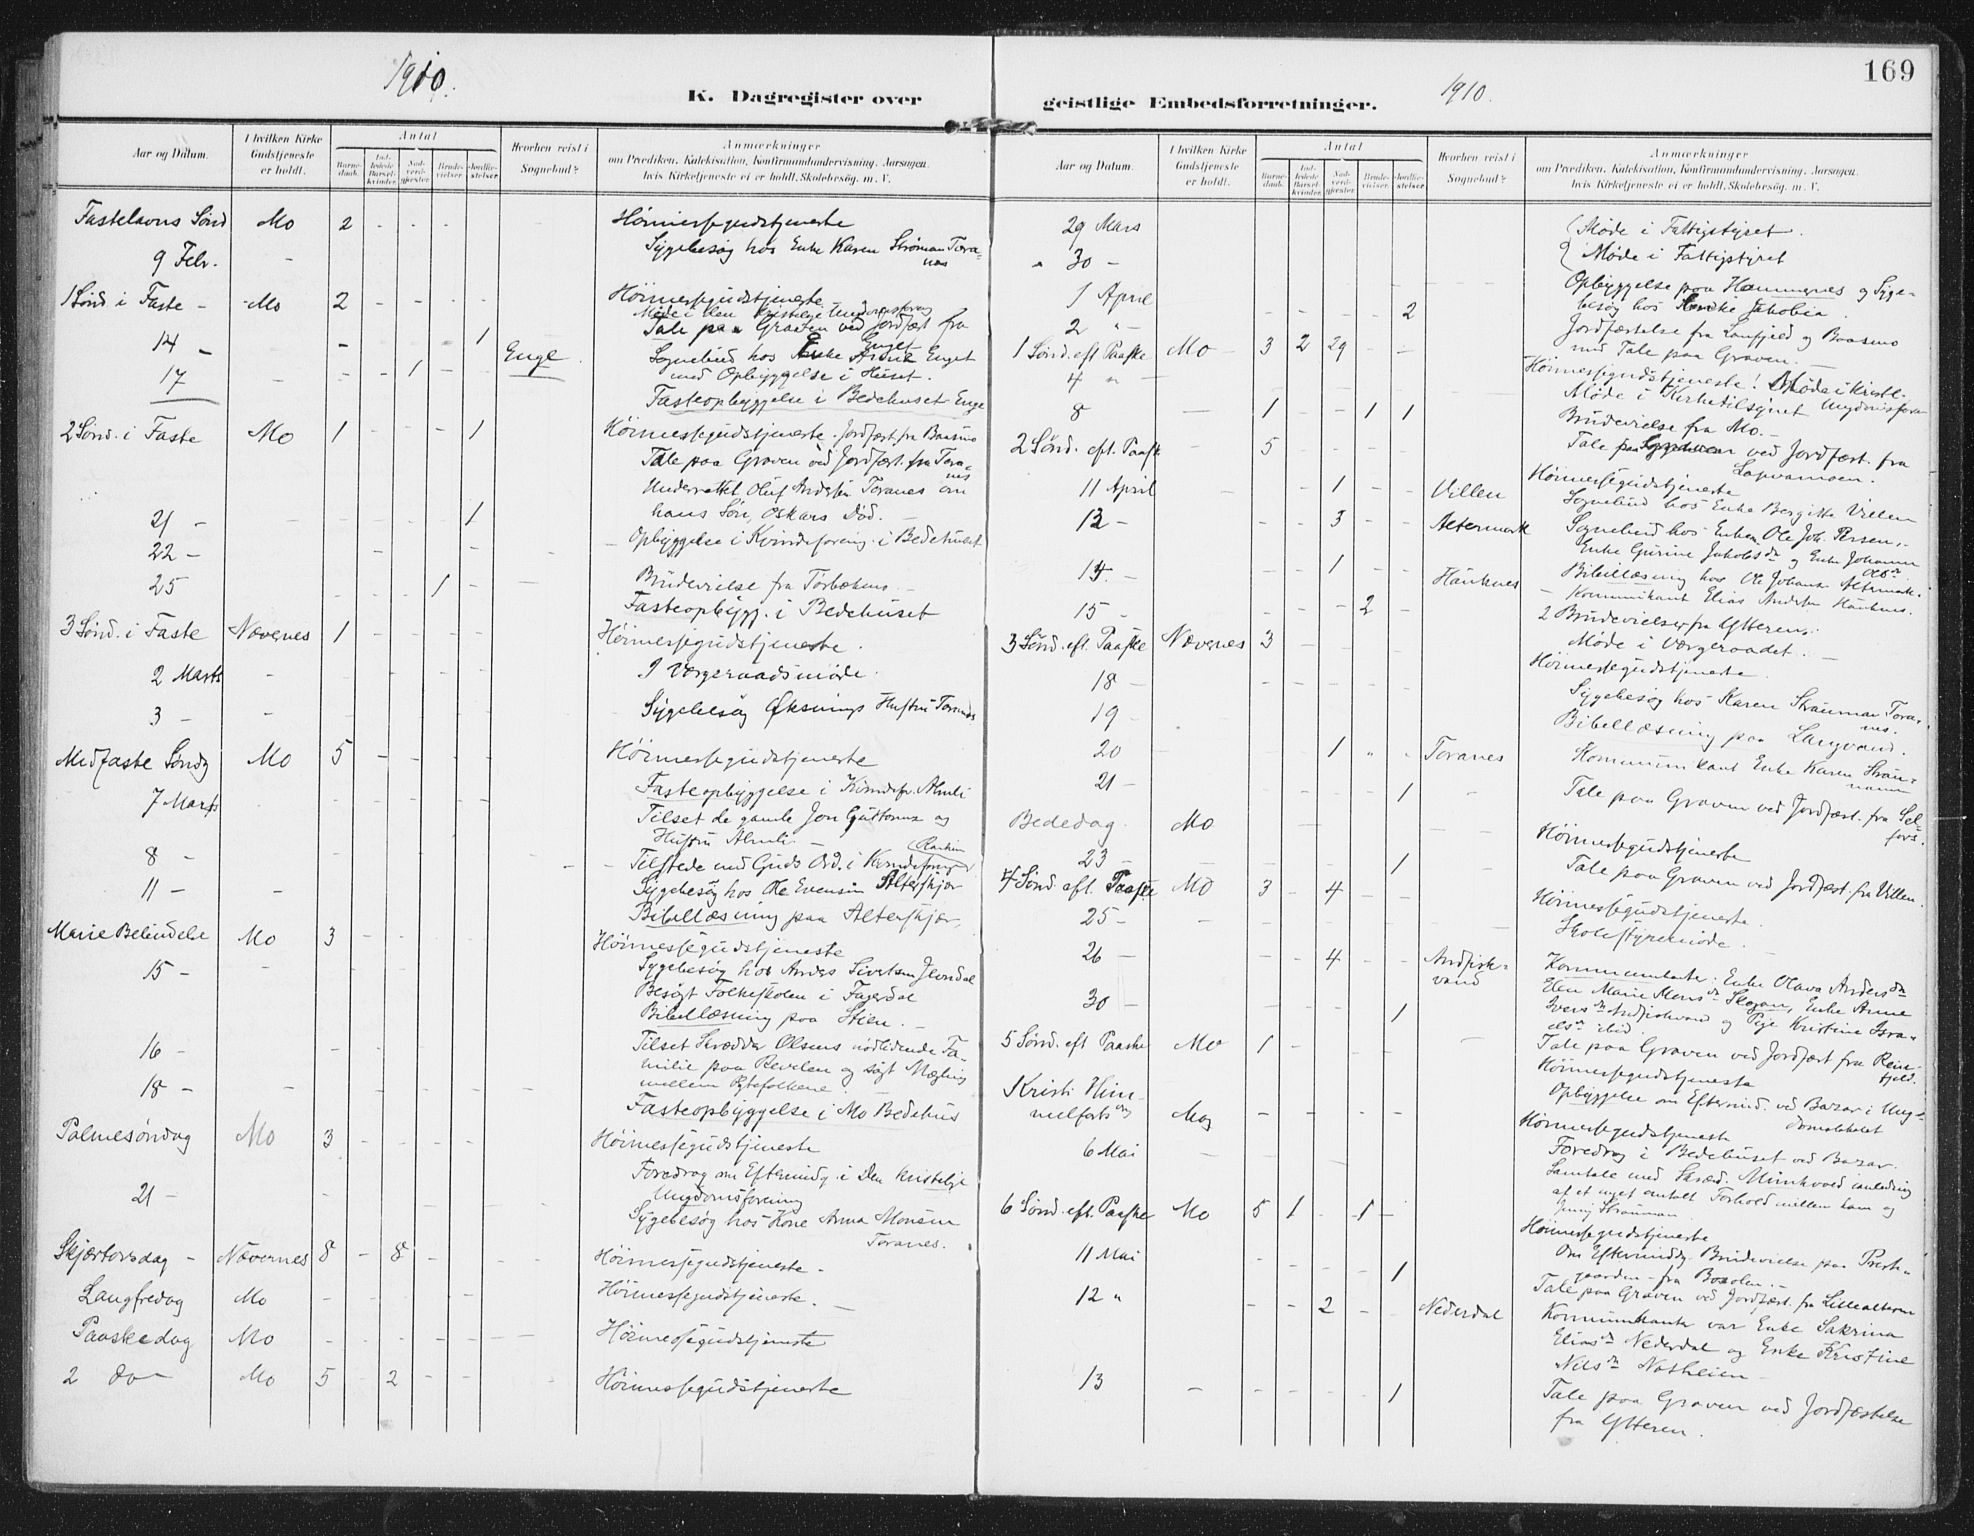 1910.
K. Dagregister over
Aar og Datum.
I hvilken Kirke Gudstjeneste er holdt.
Antal
Barnedaab.
Indledede Barselkvinder.
Nadverdgjester
Brudevielser
Jordfæstelser
Hvorhen reist i Sognebud?
Anmærkninger
om Prædiken, Katekisation, Konfirmandundervisning, Aarsagen,
hvis Kirketjeneste ei er holdt, Skolebesøg m. V.
Fastelavns Sønd Mo 2 Høimessegudstjeneste
9 Febr. Sygebesøg hos Enke Karen Strøman Toranes
1 Sønd. i Faste Mo 2 Høimessegudstjeneste
Møde i den kristelige
14 - 1 Tale paa Graven ved Jordfæst. fra Enget
17 1 Enge Sognebud hos Enget
med Opbyggelse i Huset.
Fasteopbyggelse i Bedehuset Enge
2 Sønd. i Faste Mo 1 1 Høimessegudstjeneste. Jordfæst. fra Baasmo
Tale paa Graven ved Jordfæst. fra Toranes
Underrettet Oluf Andersen Toranes om
21 - 1 hans Søn, Oskars Død.
22 - Opbyggelse i Kvindeforening i Bedehuset
25 1 Brudevielse fra
Fasteopbygg. i Bedehuset
3 Sønd. i Faste Nævernes 1 Høimessegudstjeneste.
2 Marts I Værgeraadsmøde.
3 - Sygebesøg Hustru Toranes
Midfaste Søndg Mo 5 Høimessegudstjeneste
7 Marts Fasteopbyggelse i Kvindef. Almli
Tilset de gamle Jon Guttorms og
Hustru Almli -
8 - Tilstede med Guds Ord. i Kvindeforening
11 - Sygebesøg hos Ole Evensen Alterskjær
Bibellæsning paa Alterskjær.
Marie Bebudelse Mo 3 Høimessegudstjeneste
15 - Sygebesøg hos Anders Sivertsen
Besøgt Folkeskolen i Fagerdal
Bibellæsning paa Stien.
16 - Tilset Skrædder Olsens nødlidende Familie
paa Revelen og søgt Mægling
18 - mellem Ægtefolkene.
Fasteopbyggelse i Mo Bedehus
Palmesøndag Mo 3 Høimessegudstjeneste
Foredrag om Eftermidg. i Den kristelige
Ungdomsforening
21 - Sygebesøg hos Kone Anna Monsen
Toranes.
Skjærtorsdag - Nævernes 8 - 8 Høimessegudstjeneste.
Langfredag Mo Høimessegudstjeneste.
Paaskedag Mo Høimessegudstjeneste
2 do - Mo 5 2 Høimessegudstjeneste
169
1910.
geistlige Embedsforretninger.
Aar og Datum.
I hvilken Kirke Gudstjeneste er holdt.
Antal
Barnedaab.
Indledede Barselkvinder.
Nadverdgjester
Brudevielser
Jordfæstelser
Hvorhen reist i Sognebud?
Anmærkninger
om Prædiken, Katekisation, Konfirmandundervisning, Aarsagen,
hvis Kirketjeneste ei er holdt, Skolebesøg m. V.
29 Mars Møde i Fattigstyret.
30 - Møde i Fattigstyret
1 April Opbyggelse paa Hammernes og Sygebesøg
hos Jakobia
2 " 2 Jordfæstelse fra Langfjeld og Baasmo
med Tale paa Graven -
1 Sønd. eft. Paaske Mo 3 2 29 Høimessegudstjeneste! Møde i kristl.
4 " Møde i Kirketilsynet Ungdomsforen
8 1 1 1 Brudevielse fra Mo. -
Tale paa Graven ved Jordfæst. fra
2 Sønd. eft. Paaske 5 Høimessegudstjeneste
11 April 1 Villen Sognebud hos Enke Bergitte Villen
13 - 3 Altermark Sognebud hos Ole Joh. Persen,
Enke Gurine Jakobsdn og Enke Johanna Olsdn
Bibellæsning hos Ole Johans. Altermark.
14. - 1 Hauknes Kommunikant Elias Andersen Hauknes.
15 - 2 2 Brudevielser fra Ytteren.
Møde i Værgeraadet. -
3 Sønd. eft. Paaske Nævernes 3 Høimessegudstjeneste.
18 - Sygebesøg hos Karen Strauman Toranes.
19 - Bibellæsning paa Langvand.
20 1 Toranes Kommunikant Enke Karen Straumann
21 - 1 Tale paa Graven ved Jordfæst. fra Selfors.
Bededag. Mo Høimessegudstjeneste
23 - 1 Tale paa Graven ved Jordfæst. fra Villen.
4 Sønd. eft. Paaske Mo 3 - 4 Høimessegudstjeneste.
25 - Skolestyremøde.
26 - 4 Andfiskvand Kommunikanter: Enke Olava Andersdn
Elen Marie Monsdn Skogan, Enke Anne
Iversdn Andfiskvand og Pige Kristine Israelsdn
ibid.
30 - 1 Tale paa Graven ved Jordfæst fra Reinfjeld.
5 Sønd. eft Paaske Mo 1 Høimessegudstjeneste
Opbyggelse om Eftermid. ved Bazar i Ungdomslokalet
Kristi Himmelfartsdg Mo Høimessegudstjeneste
6 Mai Foredrag i Bedehuset ved Bazar.
Samtale med Skræd. Munkvold i anledning
af et uget entelt Forhold mellem ham og
Strauman.
6 Sønd. eft. Paaske Mo 5 1 - 1 Høimessegudstjeneste
Om Eftermiddg. Brudevielse paa Prestegaarden
fra Baaolen. -
11 Mai 1 Tale paa Graven ved Jordfæst. fra Lillealteren
12 " 2 Nederdal Kommunikanter var Enke Sakrina
Eliasdn Nederdal og Enke Kristine
Nilsdn
13 1 Tale paa Graven ved Jordfæstelse
fra Ytteren.